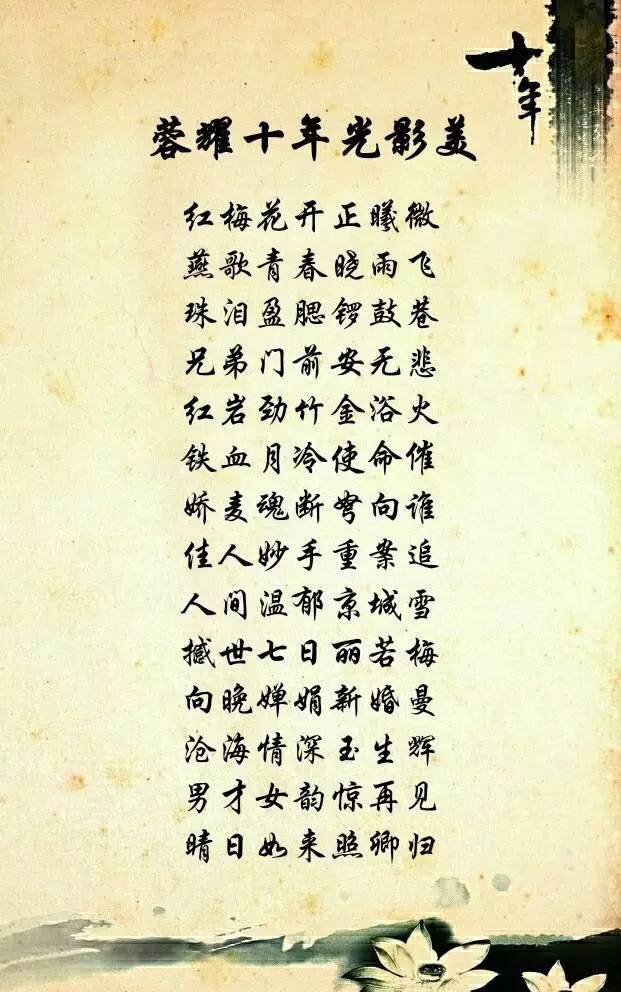 十年
蓉耀十年光影美
红梅花开正曦微
燕歌青春晓雨飞
珠泪盈腮锣鼓巷
兄弟门前安无悲
红岩劲竹金浴火
铁血月冷使命催
娇麦魂断弩向谁
佳人妙手重案追
人间温郁京城雪
撼世七日丽若梅
向晚婵娟新婚曼
沧海情深玉生辉
男才女韵惊再见
晴日如来照卿归